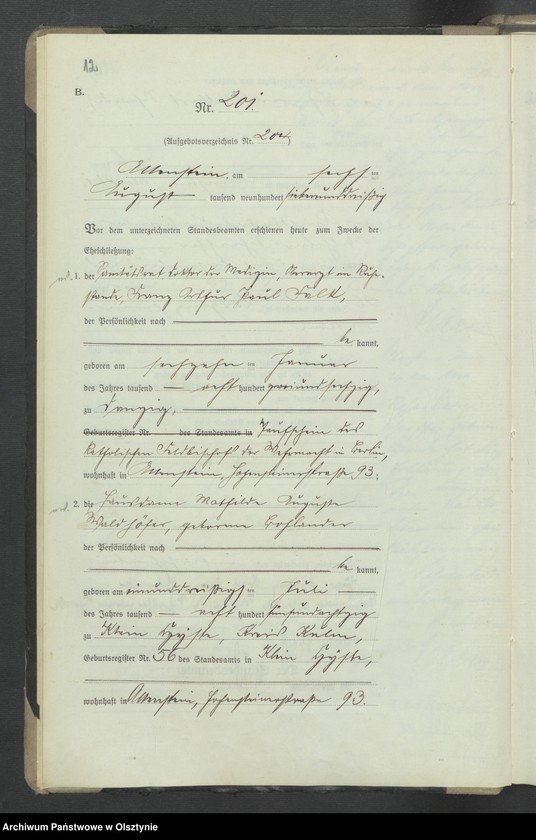 12
B.
Nr. 201.
(Aufgebotsverzeichnis Nr. 204)
Allenstein, am sechs ten
August tausend neunhundert siebenunddreißig
Vor dem unterzeichneten Standesbeamten erschienen heute zum Zwecke der
Eheschließung:
1. der Sanitätsrat Doktor der Medizin, Oberarzt im Ruhe-
stande, Franz Arthur Paul Falk,
der Persönlichkeit nach
be kannt,
geboren am sechzehn ten Januar
des Jahres tausend acht hundert zweiundsechzig,
zu Danzig,
Geburtsregister Nr. des Standesamts in Taufschein des
katholischen Feldbischofs der Wehrmacht in Berlin,
wohnhaft in Allenstein, Hohensteinerstraße 93.
2. die Hausdame Mathilde Auguste
Waldhöfer, geborene Bohlander
der Persönlichkeit nach
be kannt,
geboren am einunddreißigs ten Juli
des Jahres tausend acht hundert fünfundachtzig
zu Klein Czyste, Kreis Kulm,
Geburtsregister Nr. 56 des Standesamts in Klein Czyste,
wohnhaft in Allenstein, Hohensteinerstraße 93.
Archiwum Państwowe w Olsztynie